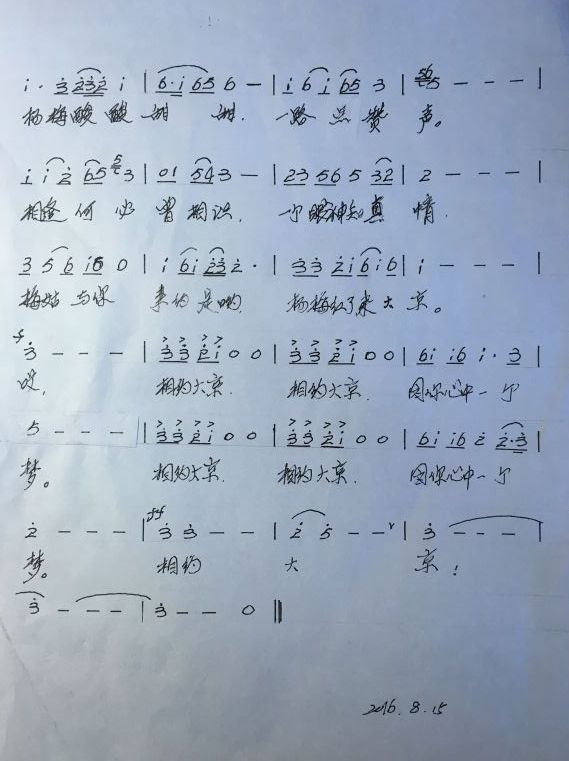 i· 3 232 i | 6·i 65 6 — | i 6 i 65 3 | 565 - - - |
杨梅酸酸甜甜. 一路点赞声。
i i 2 65 5 3 | 01 543 — | 23 56 5 32 | 2 - - - |
相逢何必曾相识, 一个眼神知真情.
3 5 6 i6 0 | i 6i 23 2· | 33 2i 6i6 | i - - - |
梅姑与你 来的是哟, 杨梅红了来大京。
f 3 - - - | 33 2i 0 0 | 33 2i 0 0 | 6i i6 i· 3 |
哎, 相约大京. 相约大京. 圆你心中一个
5 - - - | 33 2i 0 0 | 33 2i 0 0 | 6i i6 2 2·3 |
梦。 相约大京. 相约大京. 圆你心中一个
2 - - - | 3 3 - - | 2 5 - - v | 3 - - - |
梦。 相约 大 京!
3 - - - | 3 - - 0 ‖
2016.8.15